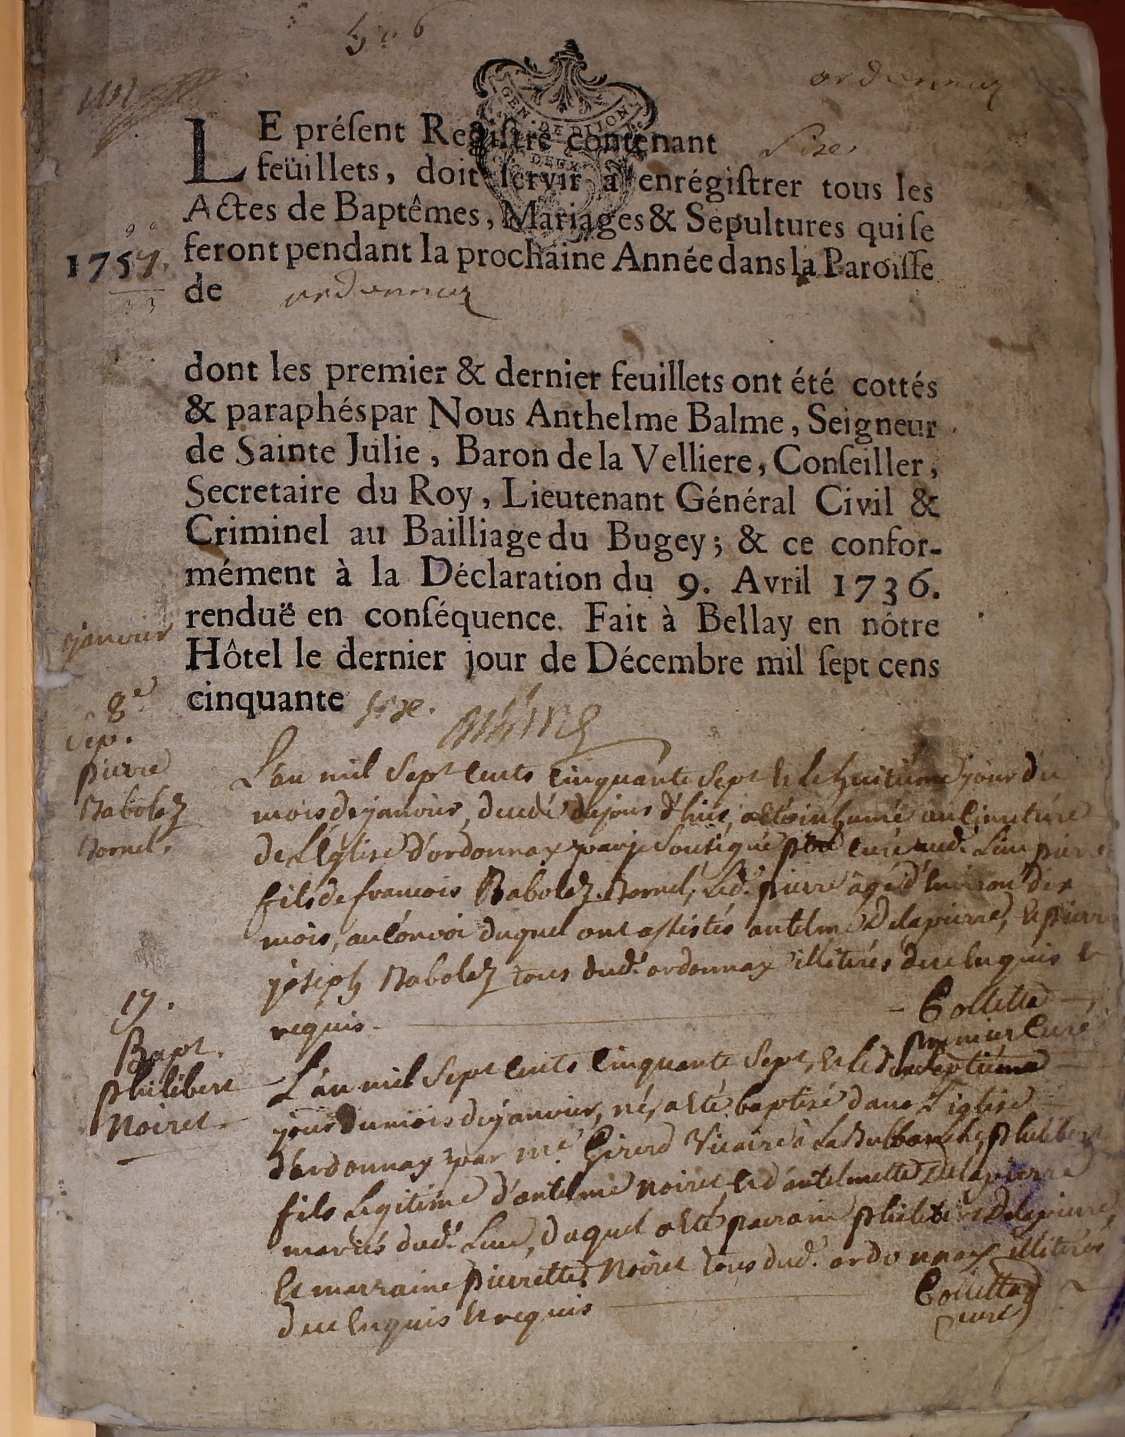 ordonnaz
LE présent Registre contenant Size
feüillets, doit servir à enrégistrer tous les
Actes de Baptêmes, Mariages & Sepultures qui se
1757.
feront pendant la prochaine Année dans la Paroisse
de ordonnaz
dont les premier & dernier feuillets ont été cottés
& paraphés par Nous Anthelme Balme, Seigneur
de Sainte Julie, Baron de la Velliere, Conseiller,
Secretaire du Roy, Lieutenant Général Civil &
Criminel au Bailliage du Bugey; & ce confor-
mément à la Déclaration du 9. Avril 1736.
renduë en conséquence. Fait à Bellay en nôtre
janvier
Hôtel le dernier jour de Décembre mil sept cens
cinquante size.
8e
Sep.
pierre
Rabolez
Bornel.
L'an mil Sept cents cinquante Sept et le huitieme jour du
mois de janvier, decedé dujour d'hier, a été inhumé au cimetiére
de L'Eglise d'ordonnaz par je Soussigné curé aud. Lieu pierre
fils de francois Rabolez Bornel, Led. pierre âgé d'environ dix
mois, au convoi duquel ont assistés antelme Delapierre, et pierre
joseph Rabolez tous dud. ordonnaz illiterés de ce enquis et
requis. Collette
premier Curé
17.
Bapt.
philibert
Noiret.
L'an mil Sept cents cinquante Sept, et le dix septiéme
jour du mois de janvier, né, a été baptisé dans L'eglise
d'ordonnaz par me. Girerd Vicaire à La Burbanche philibert
fils Legitime d'antelme noiret et d'antelmette Delapierre
mariés dud. Lieu, duquel a été parrain philibert Delapierre,
et marraine pierrette Noiret tous dud. ordonnaz illiterés
de ce enquis et requis Collette
curé